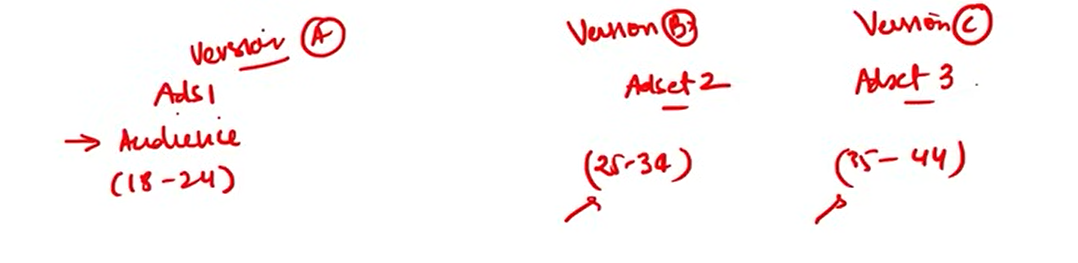 Version A
Ads1
→ Audience
(18-24)
Version B
Adset 2
(25-34)
Version C
Adset 3
(35-44)